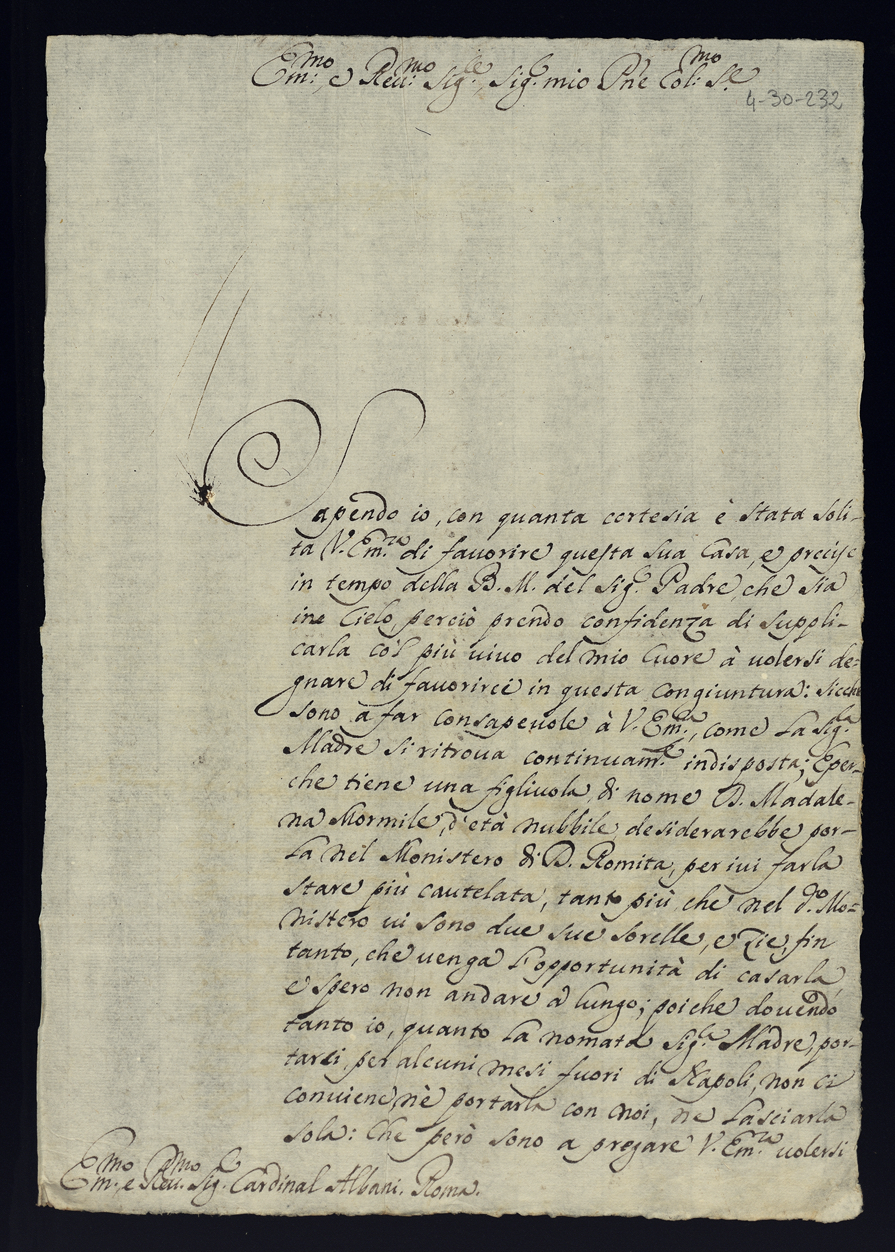 Em:mo, e Reu:mo Sig:re, Sig:r mio Pne Col:mo S.e
4-30-232
Sapendo io, con quanta cortesia è stata soli-
ta V. Em:za di fauorire questa sua Casa, e precise
in tempo della B. M. del Sig:r Padre, che sia
ine Cielo, perciò prendo confidenza di suppli-
carla cò'l più uiuo del mio Cuore à uolersi de-
gnare di fauorirci in questa congiuntura: Sicche
sono a far consapeuole à V. Em:za, come la Sig:ra
Madre si ritroua continuam:te indisposta; E per-
che tiene una figliuola di nome D. Madale-
na Mormile, d'età nubbile, desiderarebbe por-
la nel Monistero di D. Romita, per iui farla
stare più cautelata, tanto più che nel d:o Mo-
nistero ui sono due sue sorelle, e Zie, fin
tanto, che uenga l'opportunità di casarla,
e spero non andare à lungo; poiche douendo
tanto io, quanto la nomata Sig:ra Madre, por-
tarci per alcuni mesi fuori di Napoli, non ci
conuiene, nè portarla con noi, ne lasciarla
sola: Che però sono a pregare V. Em:za uolersi
Em:mo e Reu:mo Sig:r Cardinal Albani. Roma.